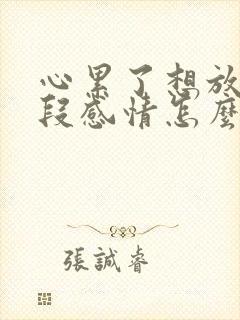 心累了想放
段感情怎麼
張誠睿